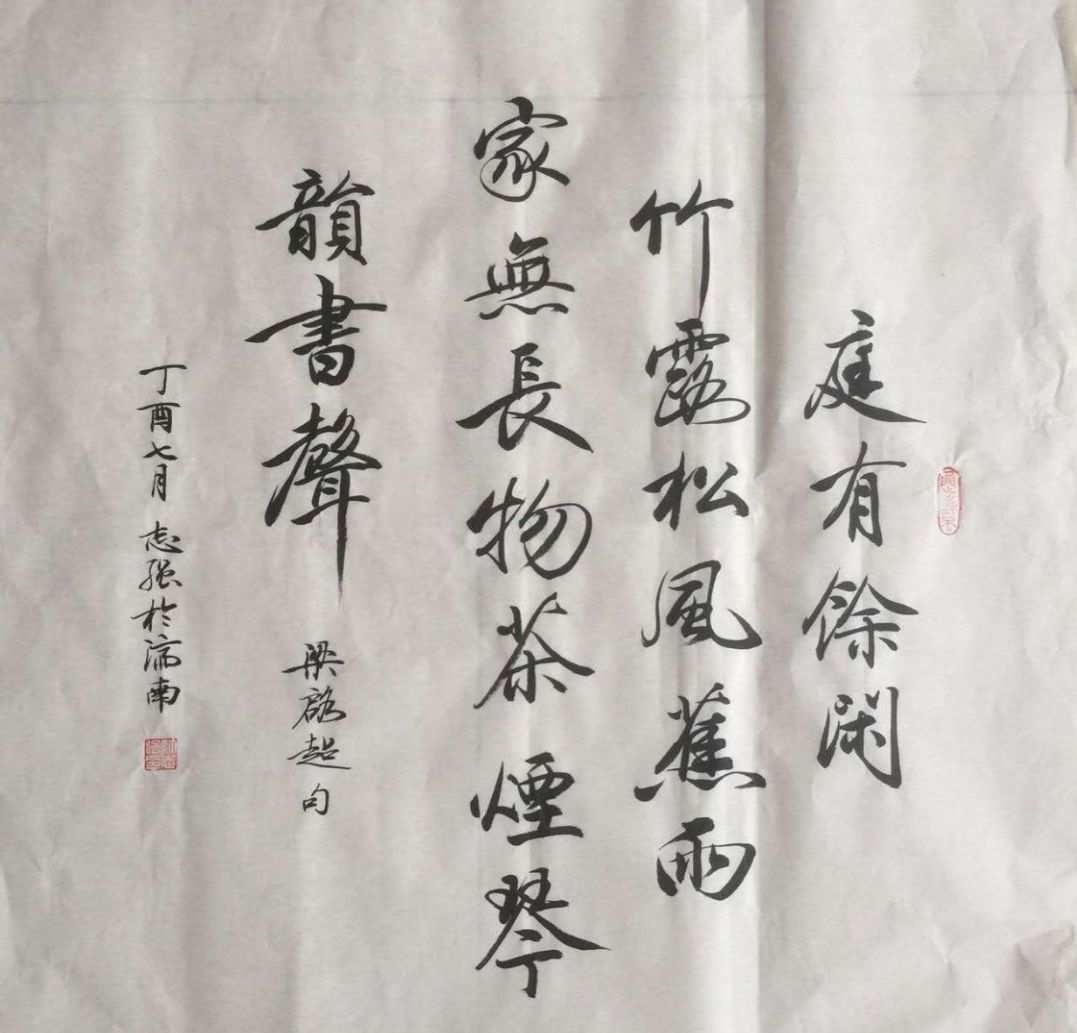 庭有餘閑
竹露松風蕉雨
家無長物茶煙琴
韻書聲
梁啟超句
丁酉七月志强於濟南